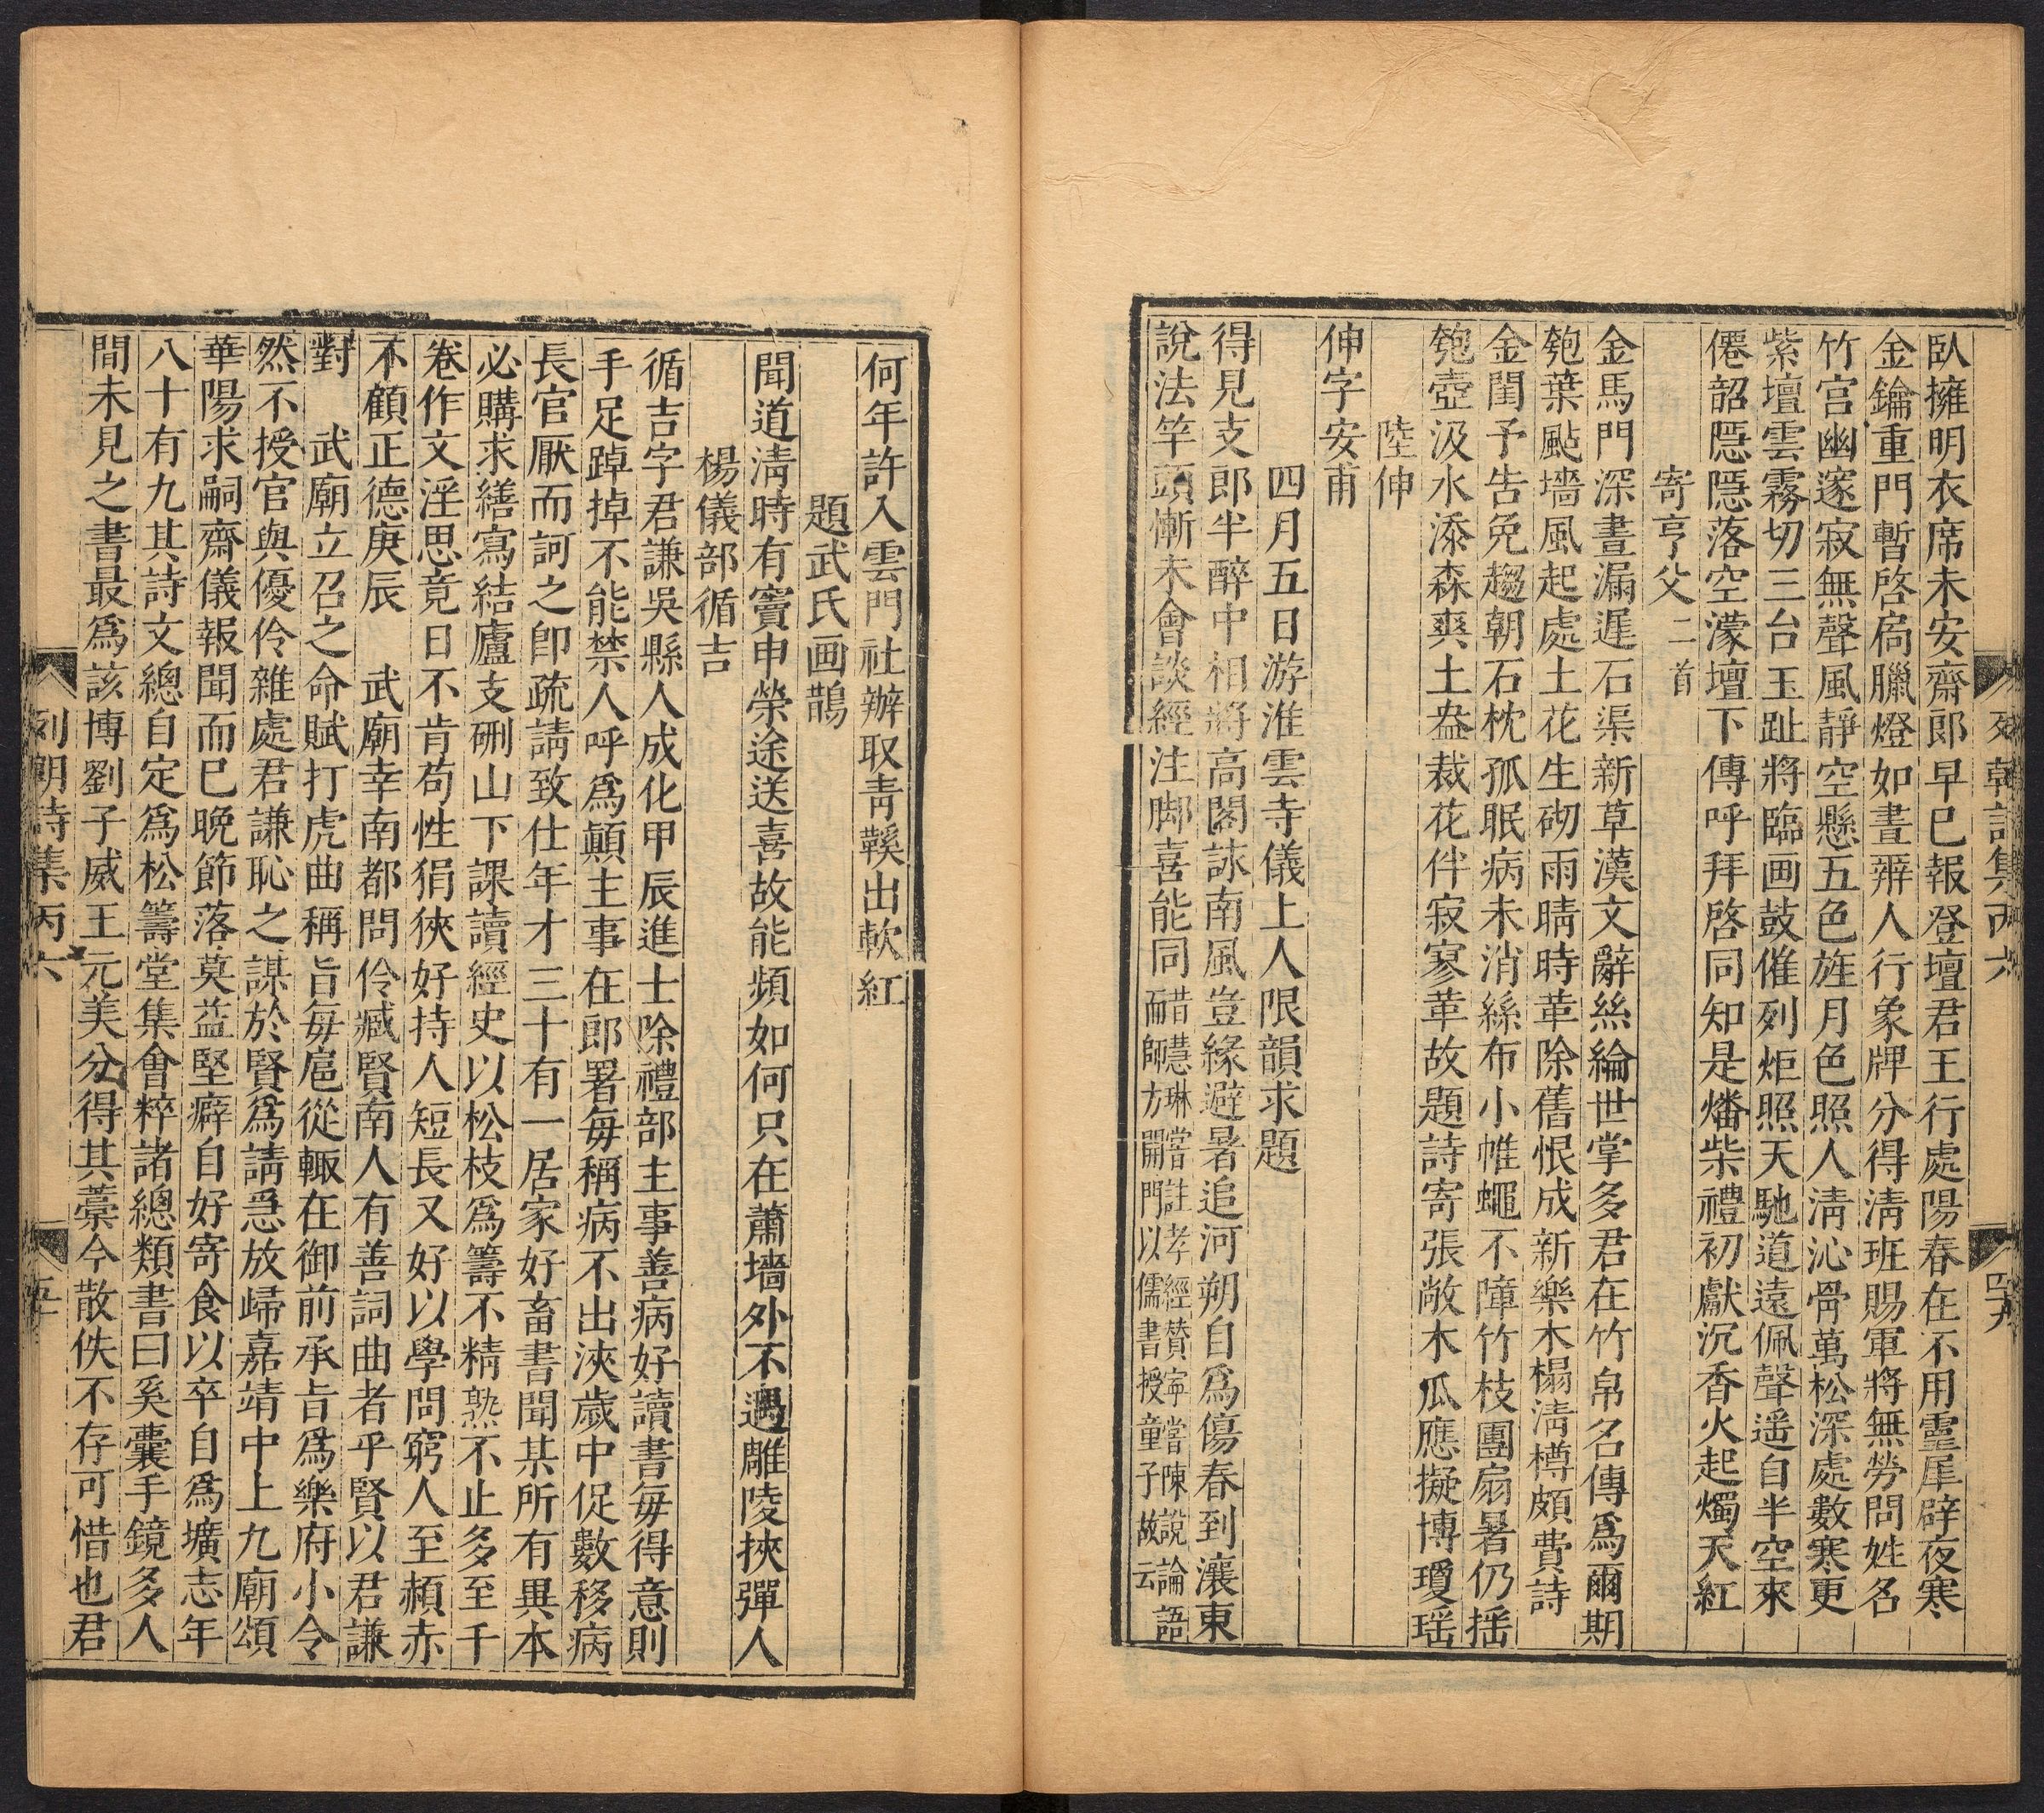 列朝詩集丙六 四九
臥擁明衣席未安齋郎早已報登壇君王行處陽春在不用靈犀辟夜寒
金鑰重門暫啓扃臘燈如晝辨人行象牌分得淸班賜軍將無勞問姓名
竹宫幽邃寂無聲風靜空懸五色旌月色照人淸沁骨萬松深處數寒更
紫壇雲霧切三台玉趾將臨画鼓催列炬照天馳道遠佩聲遥自半空來
僊韶隠隠落空濛壇下傳呼拜啓同知是燔柴禮初獻沉香火起燭天紅
寄亨父二首
金馬門深晝漏遲石渠新草漢文辭絲綸世掌多君在竹帛名傳爲爾期
匏葉颭墻風起處土花生砌雨晴時革除舊恨成新樂木榻淸樽頗費詩
金閨予告免趨朝石枕孤眠病未消絲布小帷蠅不障竹枝團扇暑仍揺
匏壺汲水添森爽土盎裁花伴寂寥革故題詩寄張敞木瓜應擬博瓊瑶
陸伸
伸字安甫
四月五日游淮雲寺儀上人限韻求題
得見支郎半醉中相將高閣詠南風豈緣避暑追河朔自爲傷春到瀼東
說法竿頭慚未會談經注脚喜能同昔慧琳嘗註孝經贊寧嘗陳說論語而師方開門以儒書授童子故云
何年許入雲門社辦取靑鞵出軟紅
題武氏画鵲
聞道淸時有竇申榮途送喜故能頻如何只在蕭墻外不遇雕陵挾彈人
楊儀部循吉
循吉字君謙吳縣人成化甲辰進士除禮部主事善病好讀書每得意則
手足踔掉不能禁人呼爲顚主事在郎署每稱病不出浹歲中促數移病
長官厭而訶之卽疏請致仕年才三十有一居家好畜書聞某所有異本
必購求繕寫結廬支硎山下課讀經史以松枝爲籌不精熟不止多至千
卷作文淫思竟日不肯苟性狷狹好持人短長又好以學問窮人至頳赤
不顧正德庚辰 武廟幸南都問伶臧賢南人有善詞曲者乎賢以君謙
對 武廟立召之命賦打虎曲稱旨每扈從輙在御前承旨爲樂府小令
然不授官與優伶雜處君謙恥之謀於賢爲請急放歸嘉靖中上九廟頌
華陽求嗣齋儀報聞而已晩節落莫益堅癖自好寄食以卒自爲壙志年
八十有九其詩文總自定爲松籌堂集會粹諸總類書曰奚囊手鏡多人
間未見之書最爲該博劉子威王元美分得其藁今散佚不存可惜也君
列朝詩集丙六 五十